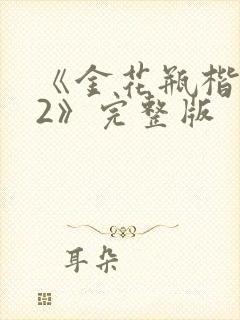 《金花瓶楷
2》完整版
耳朵